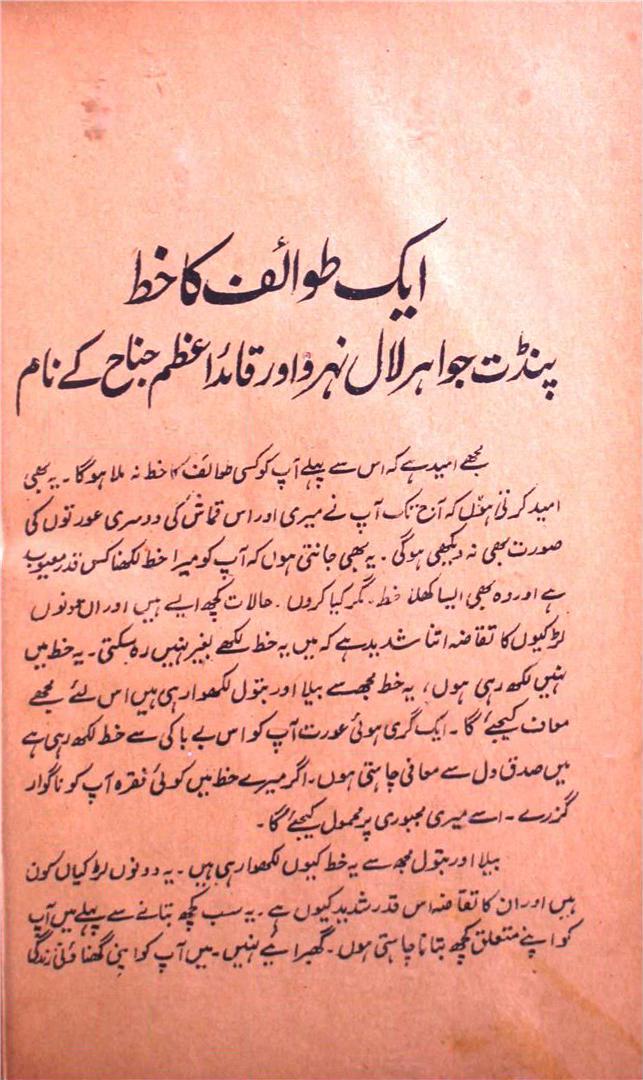 ایک طوائف کا خط
پنڈت جواہر لال نہرو اور قائد اعظم جناح کے نام
مجھے امید ہے کہ اس سے پہلے آپ کو کسی طوائف کا خط نہ ملا ہوگا۔ یہ بھی
امید کرتی ہوں کہ آج تک آپ نے میری اور اس قماش کی دوسری عورتوں کی
صورت بھی نہ دیکھی ہوگی۔ یہ بھی جانتی ہوں کہ آپ کو میرا خط لکھنا کس قدر معیوب
ہے اور وہ بھی ایسا کھلا خط۔ مگر کیا کروں۔ حالات کچھ ایسے ہیں اور ان دونوں
لڑکیوں کا تقاضہ اتنا شدید ہے کہ میں یہ خط لکھے بغیر نہیں رہ سکتی۔ یہ خط میں
نہیں لکھ رہی ہوں، یہ خط مجھ سے بیلا اور بتول لکھوا رہی ہیں اس لئے مجھے
معاف کیجئے گا۔ ایک گری ہوئی عورت آپ کو اس بے باکی سے خط لکھ رہی ہے
میں صدق دل سے معافی چاہتی ہوں۔ اگر میرے خط میں کوئی فقرہ آپ کو ناگوار
گزرے۔ اسے میری مجبوری پر محمول کیجئے گا۔
بیلا اور بتول مجھ سے یہ خط کیوں لکھوا رہی ہیں۔ یہ دونوں لڑکیاں کون
ہیں اور ان کا تقاضہ اس قدر شدید کیوں ہے۔ یہ سب کچھ بتانے سے پہلے میں آپ
کو اپنے متعلق کچھ بتانا چاہتی ہوں۔ گھبرائیے نہیں۔ میں آپ کو اپنی گھناؤنی زندگی